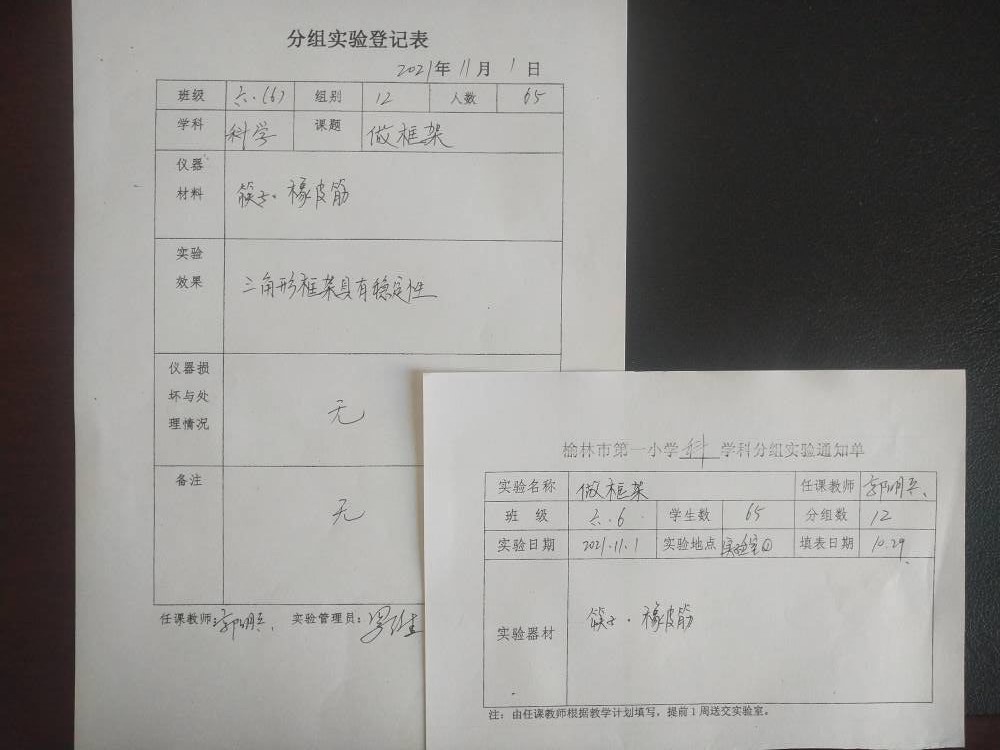 分组实验登记表
2021年11月1日
班级 六.(6) 组别 12 人数 65
学科 科学 课题 做框架
仪器材料 筷子、橡皮筋
实验效果 三角形框架具有稳定性
仪器损坏与处理情况 无
备注 无
任课教师 实验管理员：
榆林市第一小学科学科分组实验通知单
实验名称 做框架 任课教师
班级 六.6 学生数 65 分组数 12
实验日期 2021.11.1 实验地点 实验室 填表日期 10.29
实验器材 筷子、橡皮筋
注：由任课教师根据教学计划填写，提前1周送交实验室。